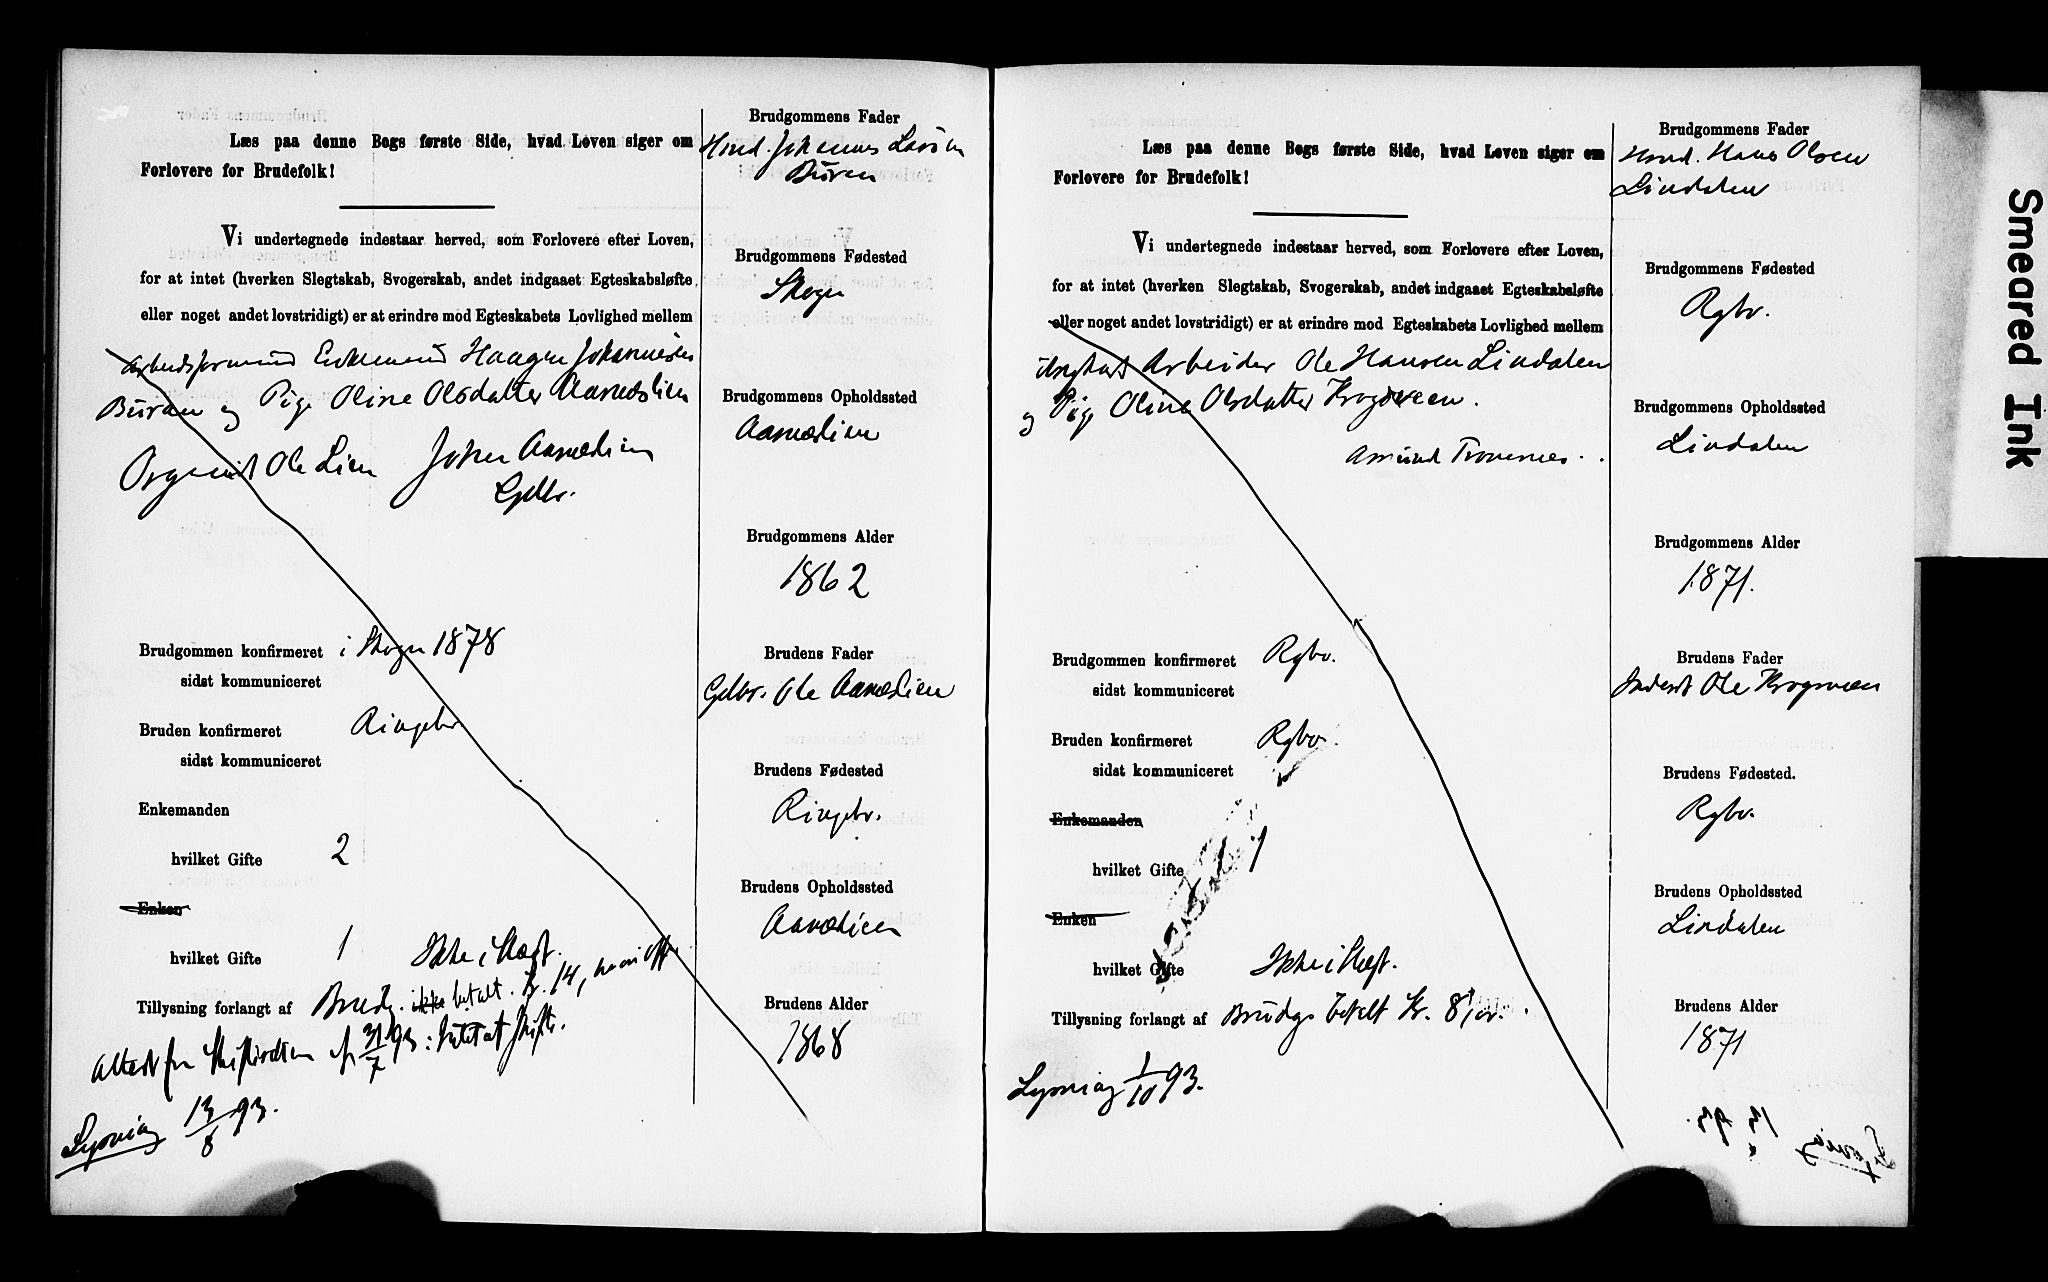 Læs paa denne Bogs første Side, hvad Loven siger om
Forlovere for Brudefolk!
Vi undertegnede indestaar herved, som Forlovere efter Loven,
for at intet (hverken Slegtskab, Svogerskab, andet indgaaet Egteskabsløfte
eller noget andet lovstridigt) er at erindre mod Egteskabets Lovlighed mellem
Enkemand Haagen Johannesen
Buran og Pige Oline Olsdatter Aarnæslien
Ole Lien Johan Aarnæslien
Gdbr.
Brudgommen konfirmeret i Skogn 1878
sidst kommuniceret
Bruden konfirmeret Ringebu
sidst kommuniceret
Enkemanden
hvilket Gifte 2
Enken
hvilket Gifte 1 Ikke i Slægt.
Tillysning forlangt af Brudg. ikke betalt. Kr. 14,
Attest fra Skifteretten af 31/7 93: Intet at skifte.
Lysning 13/8 93.
Brudgommens Fader
Johannes
Buran
Brudgommens Fødested
Skogn
Brudgommens Opholdssted
Aarnæslien
Brudgommens Alder
1862
Brudens Fader
Gdbr. Ole Aarnæslien
Brudens Fødested
Ringebu.
Brudens Opholdssted
Aarnæslien
Brudens Alder
1868
Læs paa denne Bogs første Side, hvad Loven siger om
Forlovere for Brudefolk!
Vi undertegnede indestaar herved, som Forlovere efter Loven,
for at intet (hverken Slegtskab, Svogerskab, andet indgaaet Egteskabsløfte
eller noget andet lovstridigt) er at erindre mod Egteskabets Lovlighed mellem
Ungkarl Arbeider Ole Hansen Lindalen
og Pige Oline Olsdatter Krogsveen.
Amund
Brudgommen konfirmeret Rgbo.
sidst kommuniceret
Bruden konfirmeret Rgbo.
sidst kommuniceret
Enkemanden
hvilket Gifte 1
Enken
hvilket Gifte Ikke i Slægt.
Tillysning forlangt af Brudg. betalt Kr. 8,00.
Lysning 1/10 93.
Brudgommens Fader
Hans Olsen
Lindalen
Brudgommens Fødested
Rgbo.
Brudgommens Opholdssted
Lindalen
Brudgommens Alder
1871.
Brudens Fader
Inderst Ole Krogsveen
Brudens Fødested.
Rgbo.
Brudens Opholdssted
Lindalen
Brudens Alder
1871
Smeared Ink